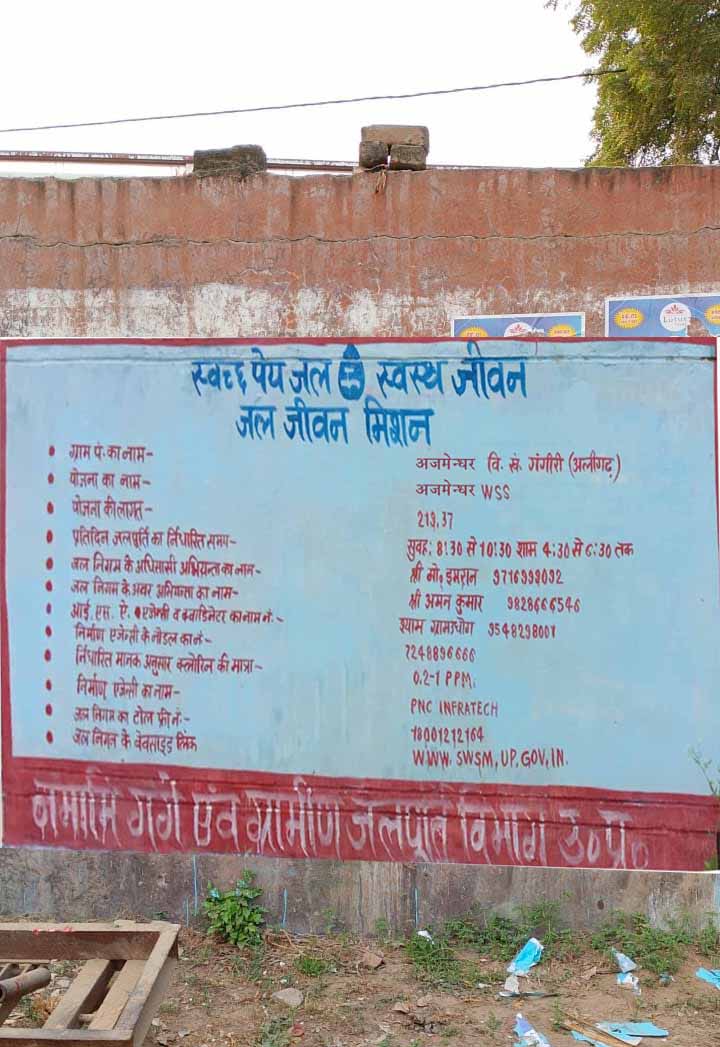 Lotus
स्वच्छ पेय जल स्वस्थ जीवन
जल जीवन मिशन
ग्राम पं. का नाम- अजमेन्घर वि. खं. गंगीरी (अलीगढ़)
योजना का नाम- अजमेन्घर WSS
योजना की लागत- 213.37
प्रतिदिन जलपूर्ति का र्निधारित समय- सुबह: 8:30 से 10:30 शाम 4:30 से 6:30 तक
जल निगम के अधिसासी अभियन्ता का नाम- श्री मो. इमरान 9716999092
जल निगम के अवर अभियन्ता का नाम- श्री अमन कुमार 9828666546
आई. एस. ऐ. एजेन्सी व क्वाडिनेटर का नाम नं.- श्याम ग्रामउधोग 9548298001
निर्माण एजेन्सी के नोडल का नं- 7248896666
र्निधारित मानक अनुसार क्लोरिन की मात्रा- 0.2-1 PPM.
निर्माण एजेन्सी का नाम- PNC INFRATECH
जल निगम का टोल फ्री नं- 18001212164
जल निगम के वेवसाइड लिंक WWW.SWSM,UP.GOV,IN.
नमामि गंगे एवं ग्रामीण जलपूर्ति विभाग उ०प्र०